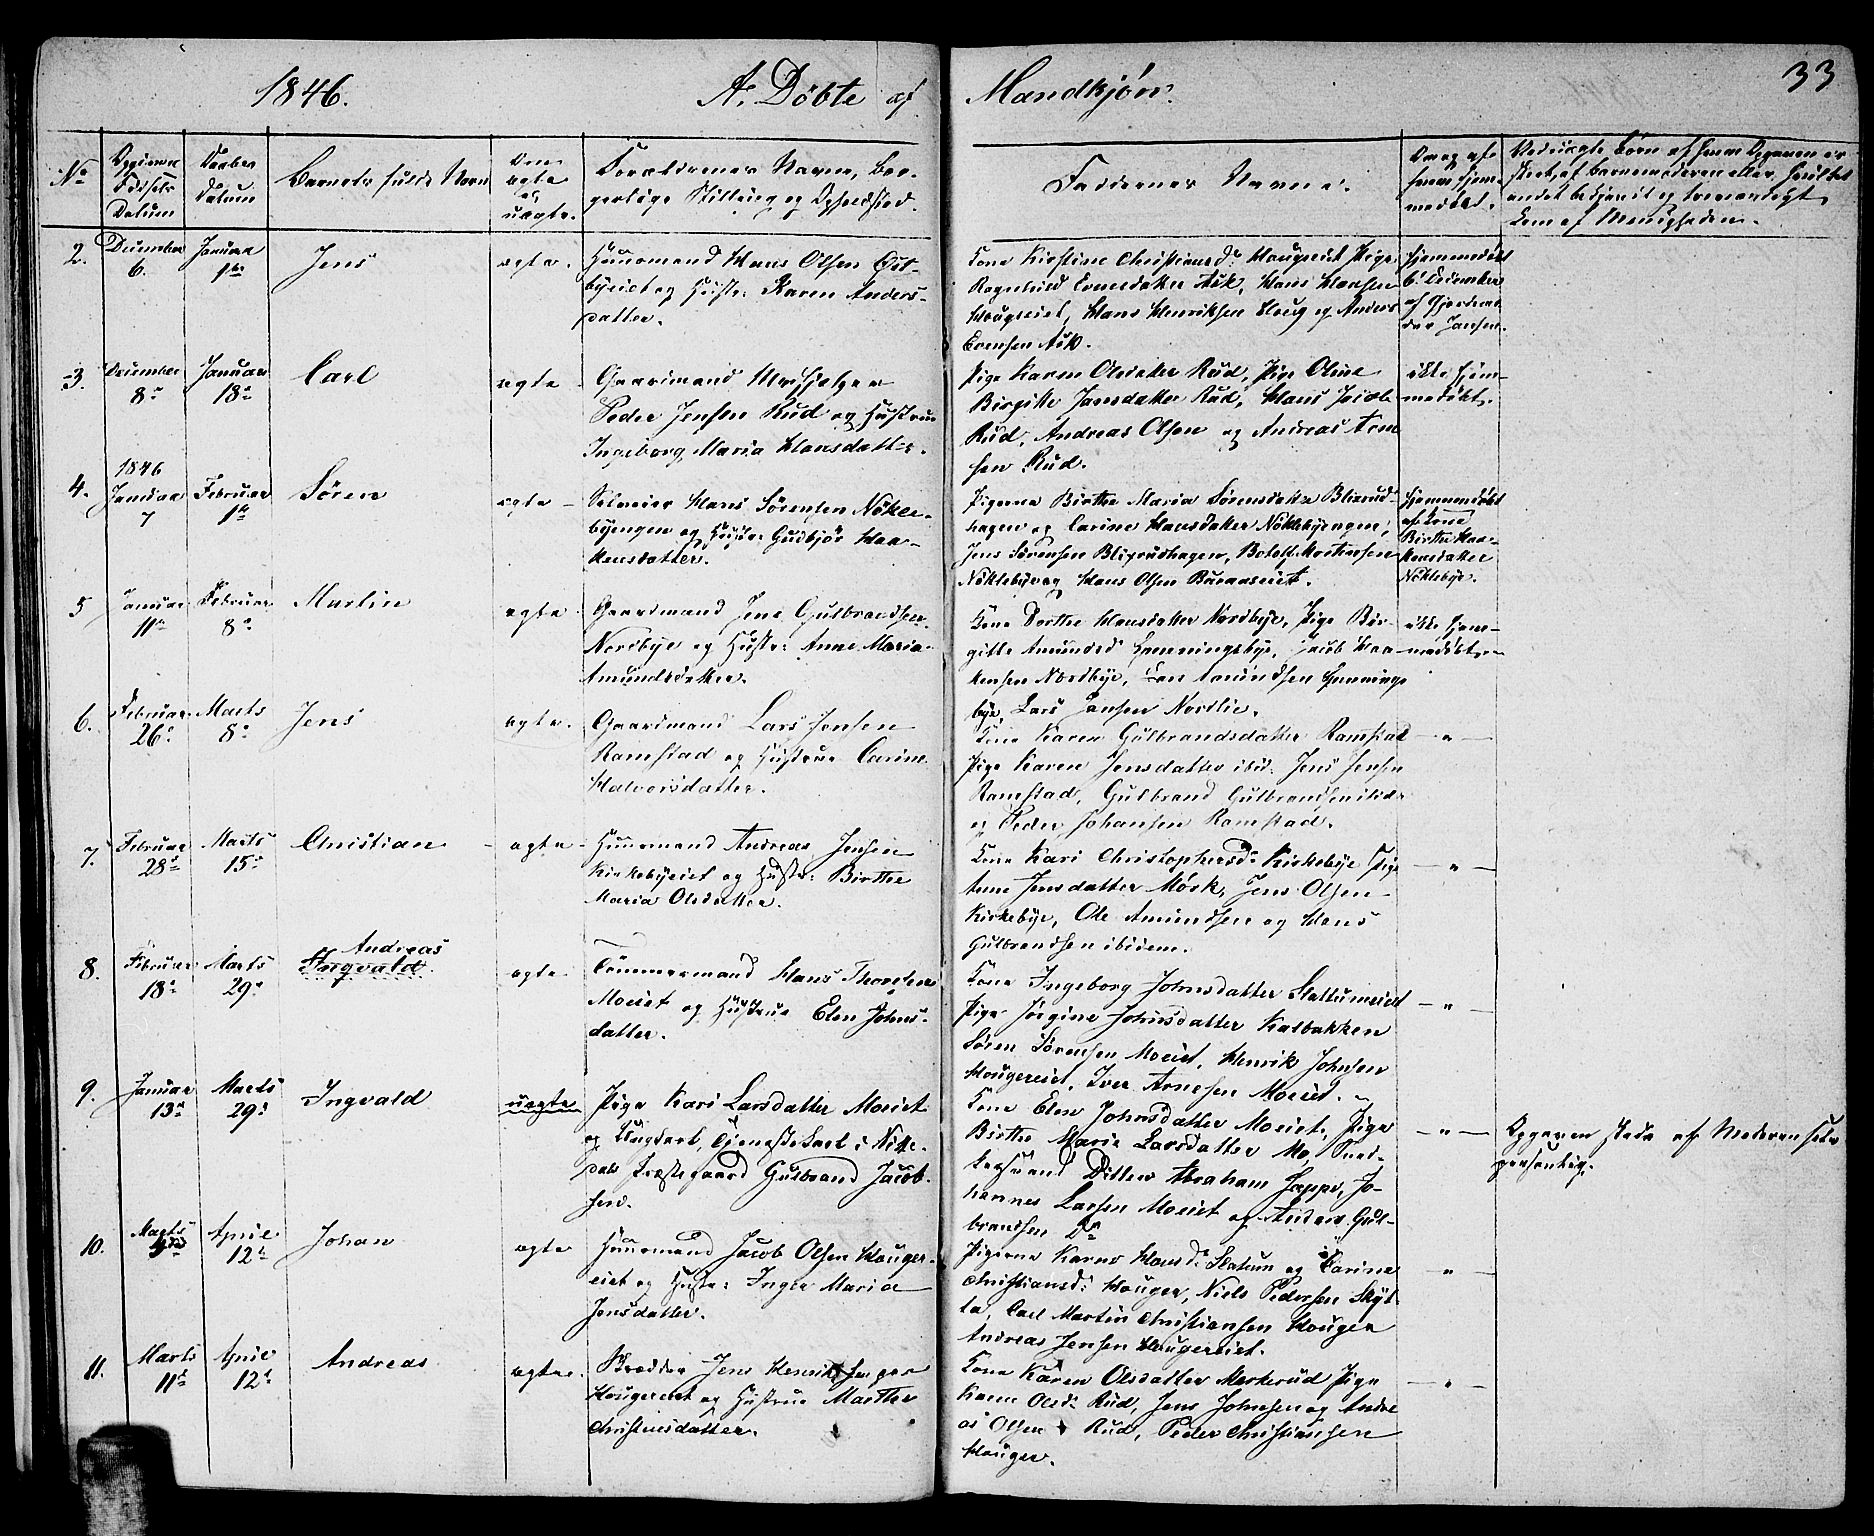 1846. A. Döbte af Mandkjøn. 33
No
Datum
Daabes
Datum
Barnets fulde Navn
ægte
uægte.
Forældrenes Navne, Bor-
gerlige Stilling og Opholdsted.
Faddernes Navne.
2. December
6.
Januar
1ste
Jens
ægte.
Huusmand Hans Olsen Øst-
byeiet og Hustr: Karen Anders-
datter.
Kone Kirstine Christiansd: Hougeeiet Pige
Ragnhild Evensdatter Ask, Hans Hansen
Hougeeiet, Hans Henriksen Houg og Anders
Evensen Ask.
Hjemmedøbt
6 December
af
Jansen.
3. December
8de
Januar
18de
Carl
ægte
Gaardmand
Peder Jensen Rud og Hustrue
Ingeborg Maria Hansdatter.
Pige Karen Olsdatter Rud, Pige Oline
Birgitte Jansdatter Rud, Hans Jacob
Rud, Andreas Olsen og Andreas Arne
sen Rud.
ikke hjem-
medøbt.
4. 1846
Januar
7
Februar
1ste
Sören
ægte
Selveier Hans Sörensen Nökle-
byengen og Hustr: Gudbjör Haa-
kensdatter.
Pigerne Birthe Maria Sörensdatter Blixrud-
hagen og Carine Hansdatter Nöklebyengen,
Jens Sörensen Blixrudhagen, Botolf Mortensen
Nöklebye og Hans Olsen
Hjemmedøbt
af Kone
Birthe Haa-
kensdatter
Nöklebye.
5 Januar
11te
Februar
8de
Martin
ægte
Gaardmand Jens Gulbrandsen
Nordbye og Hustr: Anne Maria
Amundsdatter.
Kone Dorthe Hansdatter Nordbye, Pige Bir-
gitte Amundsd Hemmingsbye, Jacob Haa
kensen Nordbye, Amundsen Hemmings
bye, Lars Jansen Nordlie.
ikke hjem-
medøbt
6. Februar
26de
Marts
8de
Jens
ægte.
Gaardmand Lars Jensen
Ramstad og Hustrue Carine
Halvorsdatter.
Kone Karen Gulbrandsdatter Ramstad
Pige Karen Jensdatter ibid. Jens Jensen
Ramstad, Gulbrand Gulbrandsen ibid:
og Peder Johansen Ramstad.
— " —
7. Februar
28de
Marts
15de
Christian
ægte
Huusmand Andreas Jensen
Kirkebyeiet og Hustr: Birthe
Maria Olsdatter.
Kone Kari Christophersd: Kirkebye Pige
Anne Jensdatter Mörk, Jens Olsen
Kirkebye, Ole Amundsen og Hans
Gulbrandsen ibidem.
— " —
8. Februar
18de
Marts
29de
Andreas
Ingvald
ægte
Tömmermand Hans Thoresen
Moeiet og Hustrue Elen Johns-
datter.
Kone Ingeborg Johnsdatter Slattumeiet
Pige Jörgine Johnsdatter Kalbakken
Sören Sörensen Moeiet, Henrik Johnsen
Hougereiet, Iver Arnesen Moeiet.
— " —
9. Januar
13de
Marts
29de
Ingvald
uægte
Pige Kari Larsdatter Moeiet
og Ungkarl, Tjenestekarl i Nitte-
dals Præstegaard Gulbrand Jacob-
sen.
Kone Elen Johnsdatter Moeiet, Pige
Birthe Marie Larsdatter Mo, Sned-
kersvend Ditlew Abraham Jo-
hannes Larsen Moeiet og Anders Gul-
brandsen Do
— " —
Opgaven skede af Moderen selv
personlig.
10. Marts
April
12te
Johan
ægte
Huusmand Jacob Olsen Houger-
eiet og Hustr: Inger Maria
Jensdatter.
Pigerne Karen Hansd: Slatum og Carine
Christiansd: Houger, Niels Pedersen Skyt-
ta, Carl Martin Christiansen Houger
Andreas Jensen Hougereiet.
— " —
11. Marts
11te
April
12te
Andreas
ægte.
Jens Henriksen
Hougereiet og Hustrue Marthe
Christiansdatter.
Kone Karen Olsdatter Markerud Pige
Karen Olsd: Rud, Jens Johnsen og Andre
as Olsen Rud, Peder Christiansen
Houger.
— " —